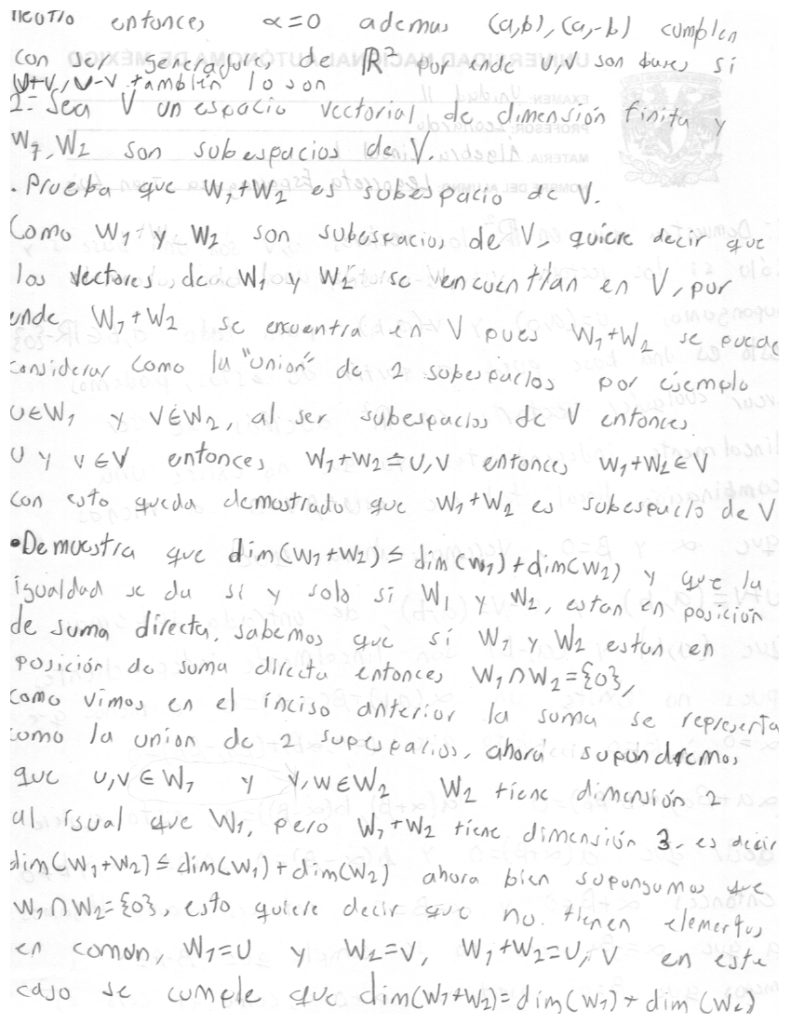 entonces α=0 ademas (a,b),(a,-b) cumplen
con ser generadores de ℝ² por ende U,V son bases si
U+V, U-V también lo son
2- Sea V un espacio vectorial de dimensión finita y
W1, W2 son subespacios de V.
. Prueba que W1+W2 es subespacio de V.
Como W1 y W2 son subespacios de V, quiere decir que
los vectores de W1 y W2 se encuentran en V, por
ende W1+W2 se encuentra en V pues W1+W2 se puede
considerar como la "union" de 2 subespacios por ejemplo
U∈W1 y V∈W2, al ser subespacios de V entonces
U y V∈V entonces W1+W2=U,V entonces W1+W2∈V
con esto queda demostrado que W1+W2 es subespacio de V
•Demuestra que dim(W1+W2)≤dim(W1)+dim(W2) y que la
igualdad se da si y solo si W1 y W2, estan en posición
de suma directa, sabemos que si W1 y W2 estan en
posición de suma directa entonces W1∩W2={0},
como vimos en el inciso anterior la suma se representa
como la union de 2 supespacios, ahora supondremos
que U,V∈W1 y V,W∈W2 W2 tiene dimensión 2
al igual que W1, pero W1+W2 tiene dimensión 3, es decir
dim(W1+W2)≤dim(W1)+dim(W2) ahora bien supongamos que
W1∩W2={0}, esto quiere decir que no tienen elementos
en común, W1=U y W2=V, W1+W2=U,V en este
caso se cumple que dim(W1+W2)=dim(W1)+dim(W2)